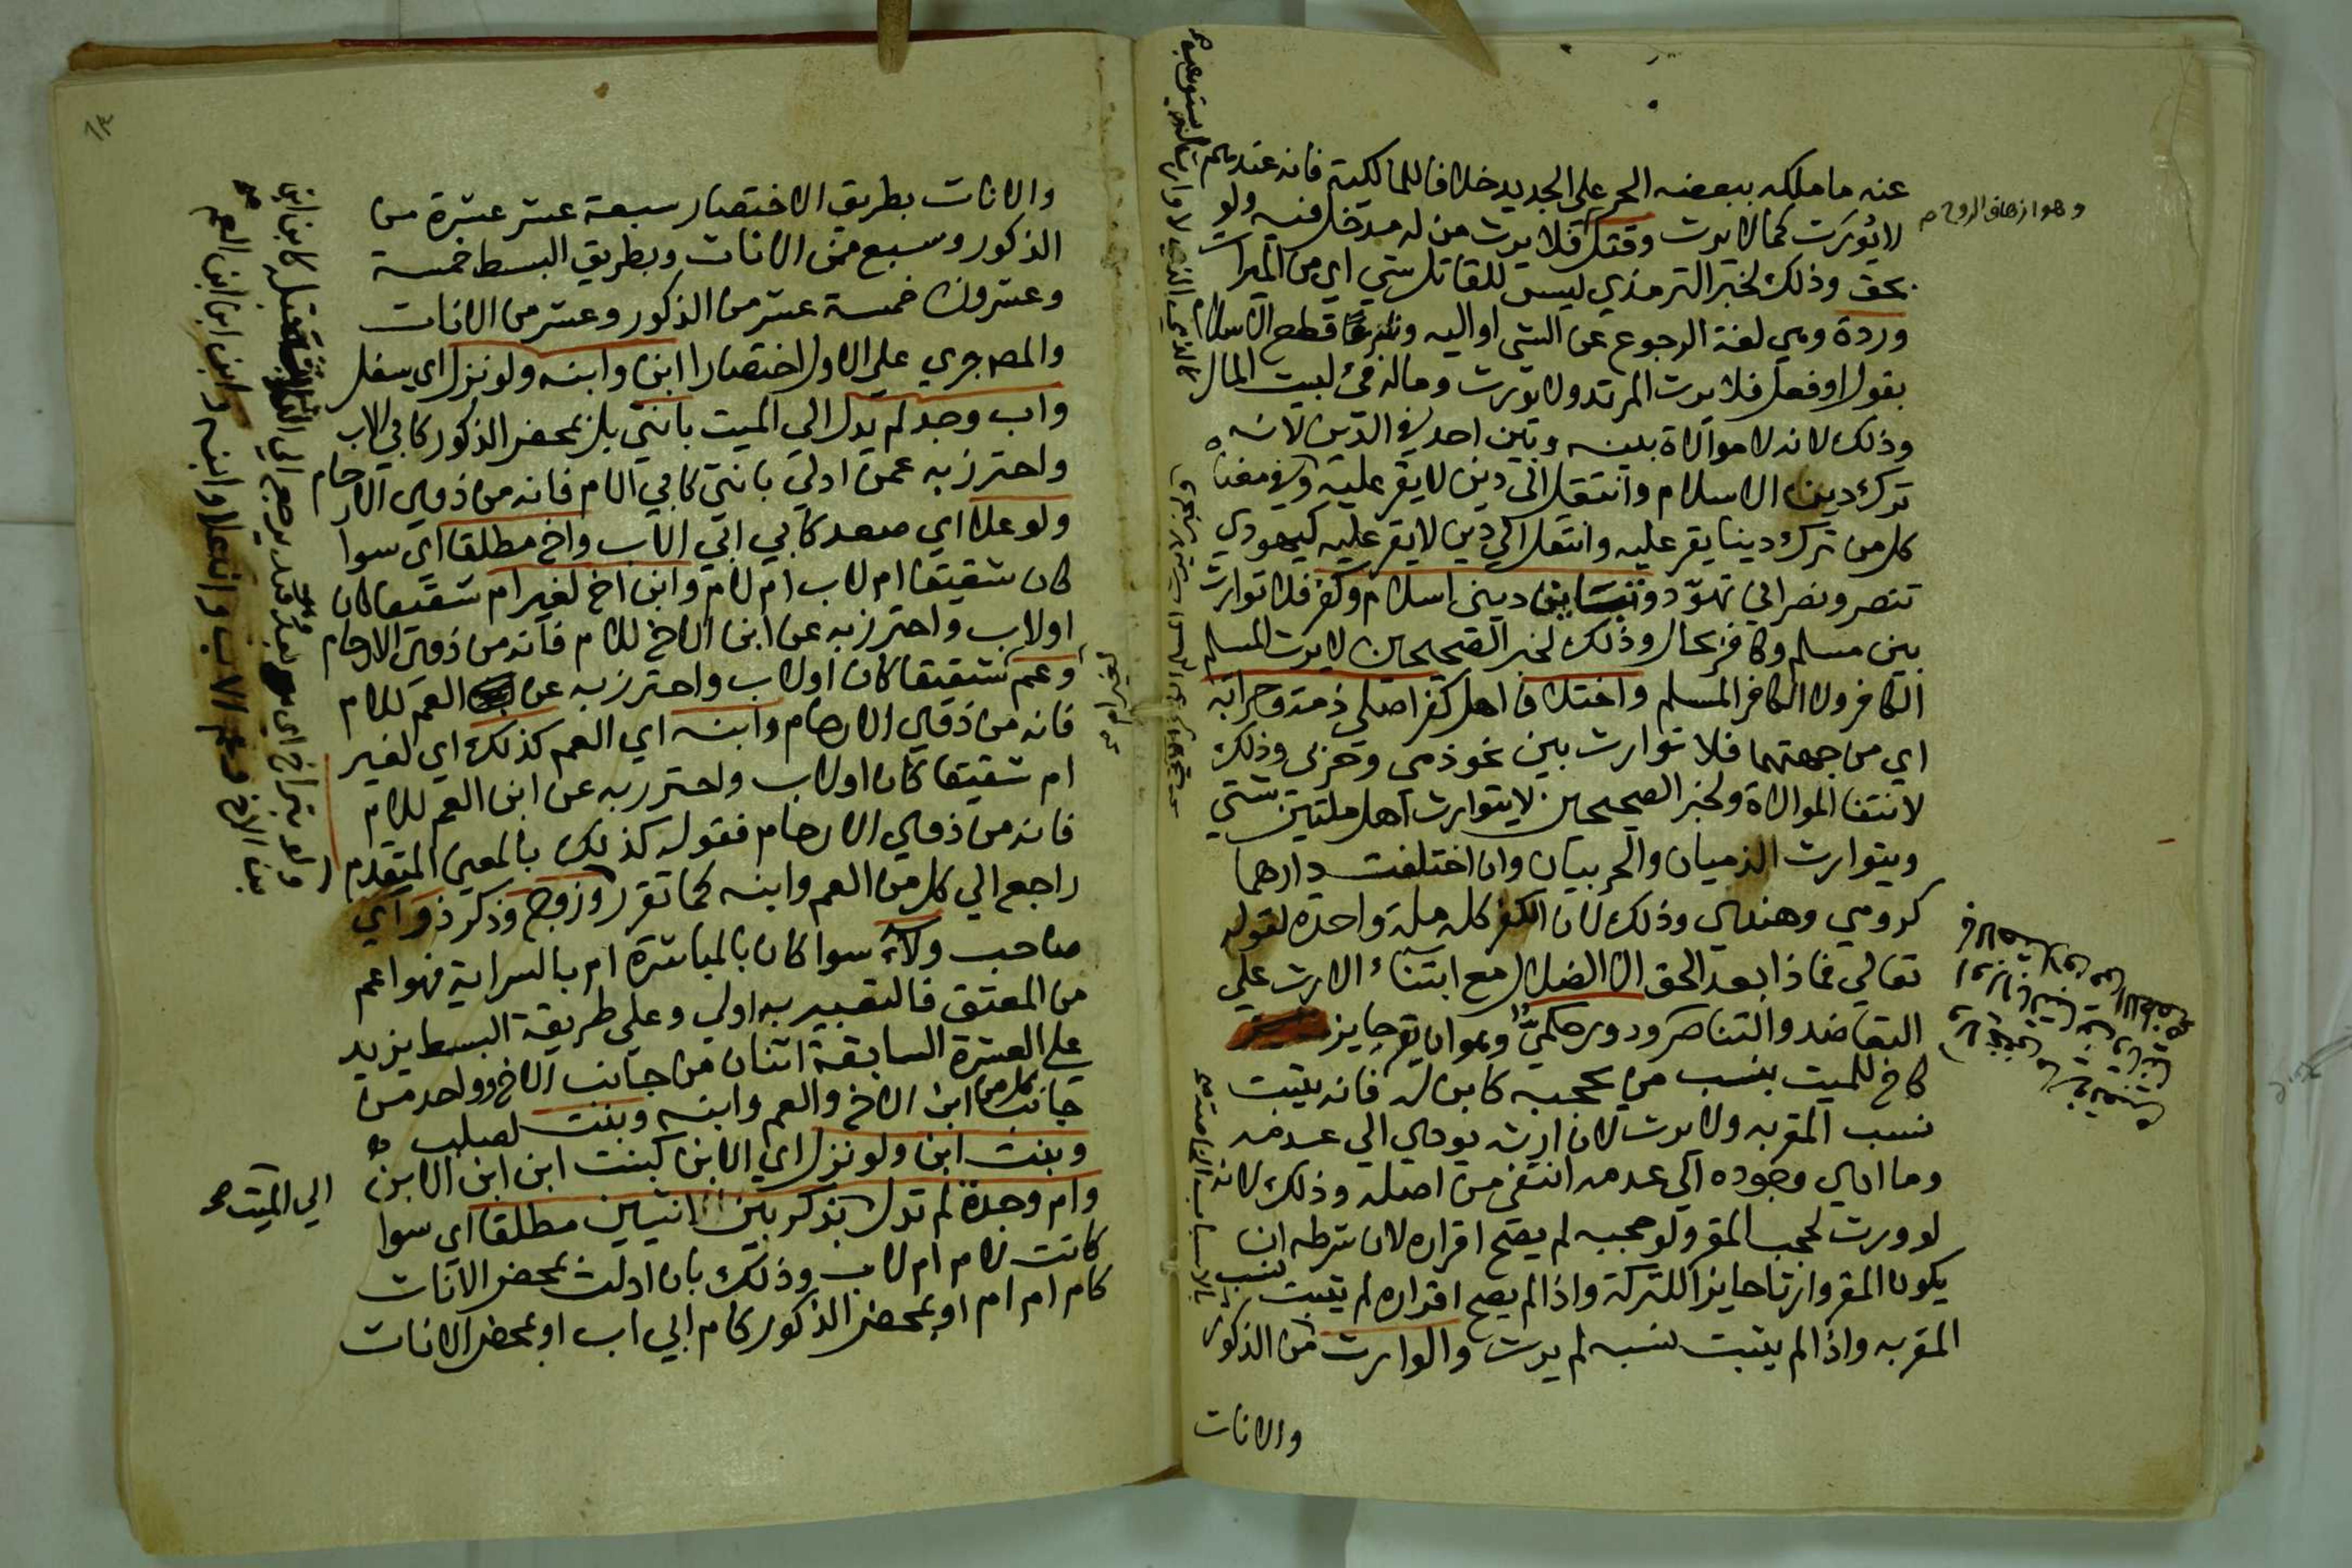 عنه ما ملكه ببعضه الحر علي الجديد خلافا للمالكية فانه عندهم
لا يورث كما لا يرث وقتل فلا يرث من له مدخل فيه ولو
بحق وذلك لخبر الترمذي ليس للقاتل شي اي من الميراث
وردة وهي لغة الرجوع عن الشي او اليه وشرعا قطع الاسلام
بقول او فعل فلا يرث المرتد ولا يورث وماله فئ لبيت المال
وذلك لانه لا موالاة بينه وبين احد في الدين لانه
ترك دين الاسلام وانتقل الي دين لا يقر عليه وفي معناه
كل من ترك دينا يقر عليه وانتقل الي دين لا يقر عليه كيهودي
تنصر ونصراني تهود و دينى اسلام وكفر فلا توارث
بين مسلم وكافر بحال وذلك لخبر الصحيحين لا يرث المسلم
الكافر ولا الكافر المسلم واختلاف اهل كفر اصلي ذمة وحرابة
اي من جهتهما فلا توارث بين نحو ذمي وحربى وذلك
لانتفا الموالاة ولخبر الصحيحين لا يتوارث اهل ملتين شتي
ويتوارث الذميان والحربيان وان اختلفت دارهما
كرومي وهندي وذلك لان الكفر كله ملة واحدة لقوله
تعالي فماذا بعد الحق الا الضلال مع ابتناء الارث علي
التعاضد والتناصر ودور حكمي وهو ان يقر حايز
كاخ للميت بنسب من يحجبه كابن له فانه يثبت
نسب المقر به ولا يرث لان ارثه يودي الي عدمه
وما ادي وجوده الي عدمه انتفى من اصله وذلك لانه
لو ورث لحجب المقر ولو حجبه لم يصح اقراره لان شرطه ان
يكون المقر وارثا حايزا للتركة واذا لم يصح اقراره لم يثبت نسب
المقر به واذا لم يثبت نسبه لم يرث والوارث من الذكور
والاناث
وهو ازهاق الروح
والاناث بطريق الاختصار سبعة عشر عشرة من
الذكور وسبع من الاناث وبطريق البسط خمسة
وعشرون خمسة عشر من الذكور وعشر من الاناث
والمص جري علي الاول اختصارا ابن وابنه ولو نزل اي سفل
واب وجد لم يدل الي الميت بانثي بل بمحض الذكور كابي الاب
واحترز به عمن ادلي بانثي كابي الام فانه من ذوي الارحام
ولو علا اي صعد كابي ابي الاب واخ مطلقا اي سوا
كان شقيقا ام لاب ام لام وابن اخ لغير ام شقيقا كان
او لاب واحترز به عن ابن الاخ للام فانه من ذوي الارحام
وعم شقيقا كان او لاب واحترز به عن العم للام
فانه من ذوي الارحام وابنه اي العم كذلك اي لغير
ام شقيقا كان او لاب واحترز به عن ابن العم للام
فانه من ذوي الارحام فقوله كذلك بالمعنى المتقدم
راجع الي كل من العم وابنه كما تقرر وزوج وذكر ذو اي
صاحب ولاء سوا كان بالمباشرة ام بالسراية فهو اعم
من المعتق فالتعبير به اولي وعلي طريقة البسط يزيد
علي العشرة السابقة اثنان من جانب الاخ وواحد من
جانب كل من ابن الاخ والعم وابنه وبنت لصلب
وبنت ابن ولو نزل اي الابن كبنت ابن ابن الابن
وام وجدة لم تدل بذكر بين انثيين مطلقا اي سوا
كانت لام ام لاب وذلك بان ادلت بمحض الاناث
كام ام ام او بمحض الذكور كام ابي اب او بمحض الاناث
الي الميت
١٣